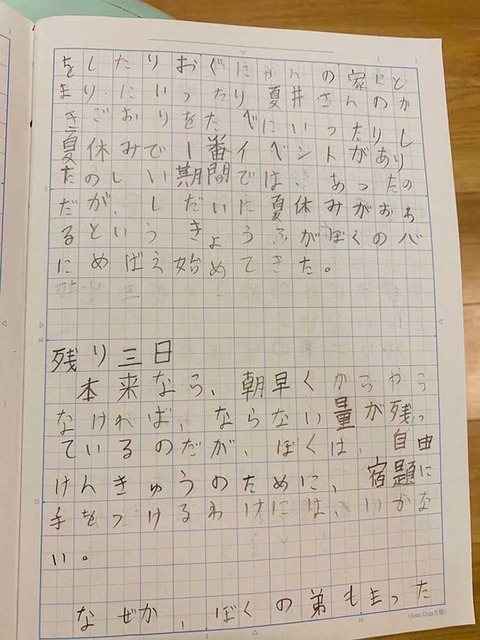 をしたりおぐにの家にと
まり、にいったり夏井さんのか
きごおりをたべにいったりし
夏休みで一番イベントがあり
たのしい期間では、あったの
だが、しだいに夏休みがおわ
るというきょうふがぼくの心
にめばえ始めてきた。
残り三日
本来なら、朝早くからやら
なければ、ならない量が残っ
ているのだが、ぼくは、自由
けんきゅうのために、宿題に
手をつけるわけには、いかな
い。
なぜか、ぼくの弟もまった